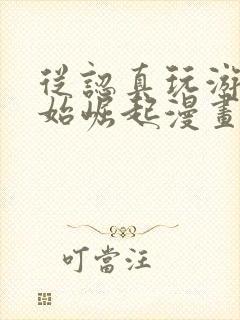 從認真玩游
始崛起漫畫
叮當汪